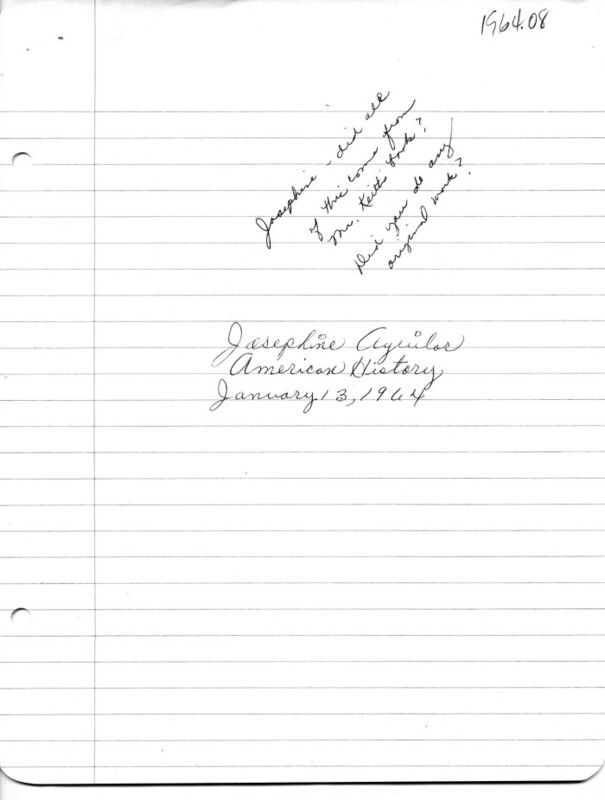 1964.08
Josephine - did all
of this come from
Mr. Keith's book?
Did you do any
original work?
Josephine Aguilar
American History
January 13, 1964